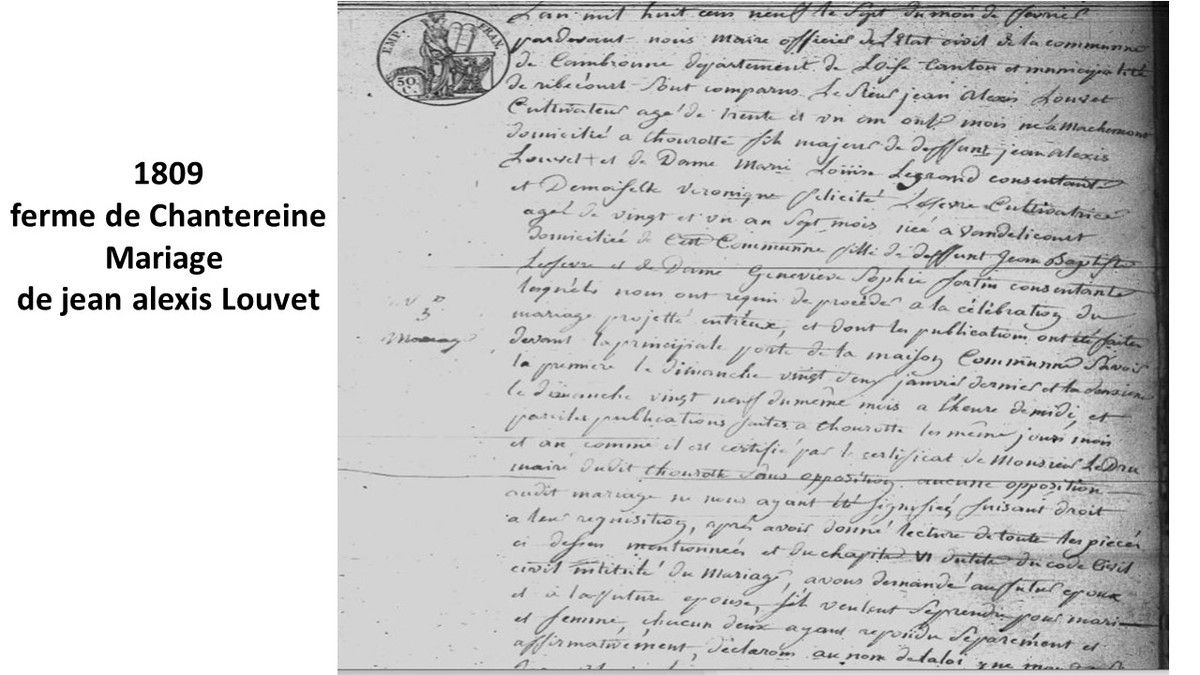 1809
ferme de Chantereine
Mariage
de jean alexis Louvet
EMP. FRAN.
50
C.
Lan mil huit cens neuf le Sept du mois de fevrier
pardevant nous maire officier de l'Etat civil de la communne
de Cambronne departement de Loise Canton et municipalité
de ribécourt Sont comparus Le Sieur jean Alexis Louvet
Cultivateur agé de trente et un an onze mois né a Machemont
domicilié a thourotte fils majeur de deffunt jean alexis
Louvet et de Dame Marie Louise Legrand consentante
et Demoiselle veronique felicité Lefevre Cultivatrice
ageé de vingt et un an Sept mois neé a vandelicourt
domiciliée de Cette Communne fille de deffunt Jean Baptiste
Lefevre et de Dame Genevieve Sophie fortin consentante
lesquels nous ont requis de proceder a la célébration du
mariage projetté entréux, et dont les publications ont été faites
devant la principale porte de la maison Communne Savoir
la premiere le dimanche vingt deux janvier dernier et la deuxieme
le dimanche vingt neuf du même mois a l'heure de midi, et
pareilles publications faites a thourotte les même jours mois
et an comme il est certifié par le certificat de Monsieur LeDru
maire dudit thourotte Sans opposition. aucune opposition
audit mariage ne nous ayant été Signifiée faisant droit
a leur requisition, aprés avoir donné lecture de toute les pieces
ci dessus mentionneés et du chapitre VI du titre du code Civil
civil intitulé du Mariage, avons demandé au futur epoux
et a la future epouse, S'ils veulent Se prendre pour mari
et femme, chacun deux ayant repondu Séparement et
affirmativement, déclarons au nom de la loi que
3
Mariage